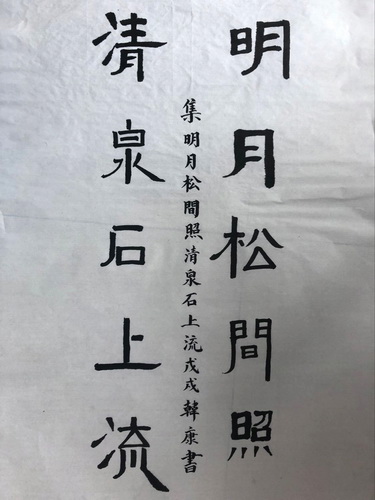 明月松間照
清泉石上流
集明月松間照清泉石上流戊戌韓康書